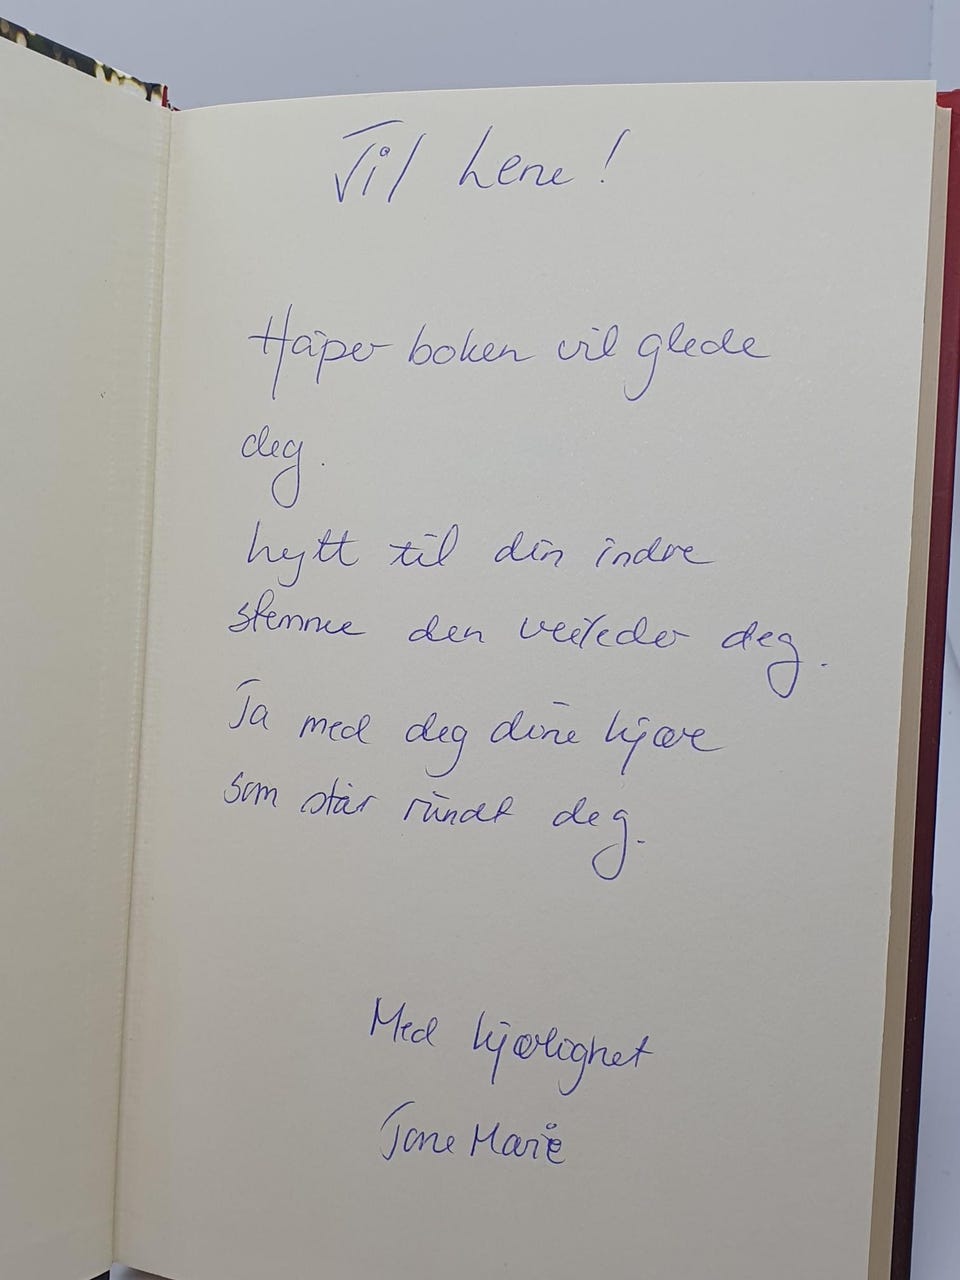 Til Lene!
Håper boken vil glede
deg.
Lytt til din indre
stemme den veileder deg.
Ta med deg dine kjære
som står rundt deg.
Med kjærlighet
Tone Marie